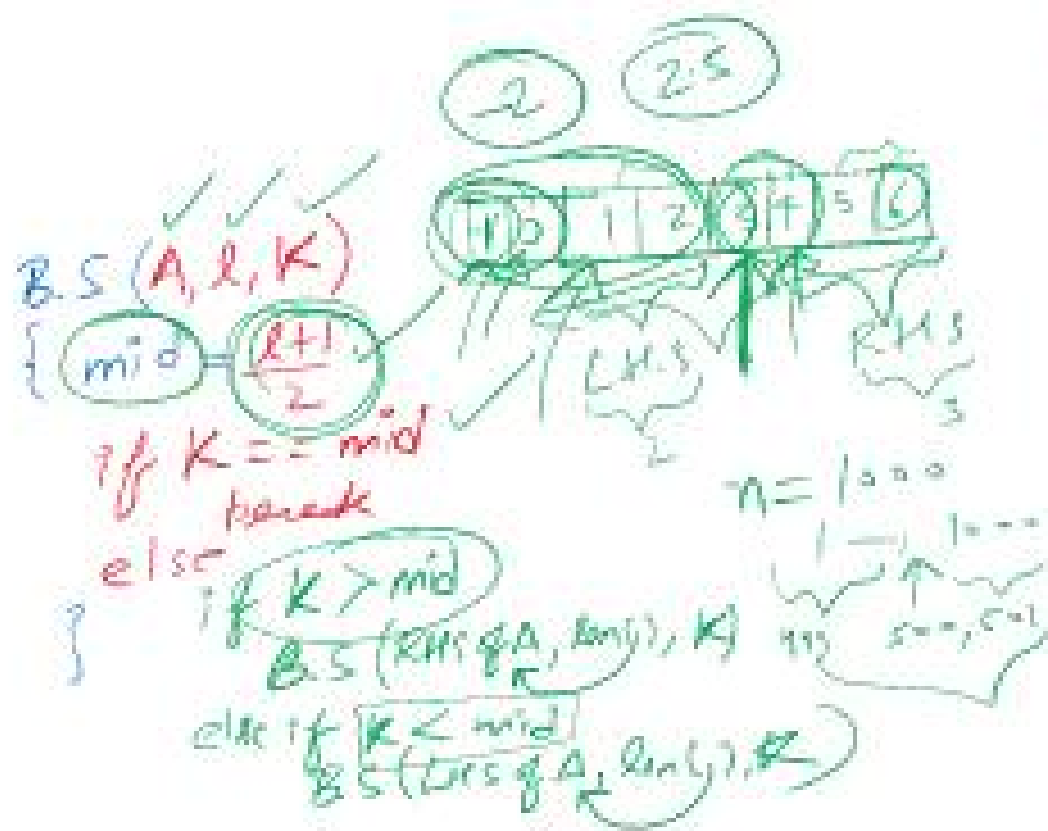 2
2.5
-1 0 1 2 3 4 5 6
B.S (A, l, K)
{ mid = l+1
2
L.H.S
2
R.H.S
3
if K == mid
n = 1000
else
if K > mid
B.S (RHS of A, len(), K)
}
else if K < mid
B.S (LHS of A, len(), K)